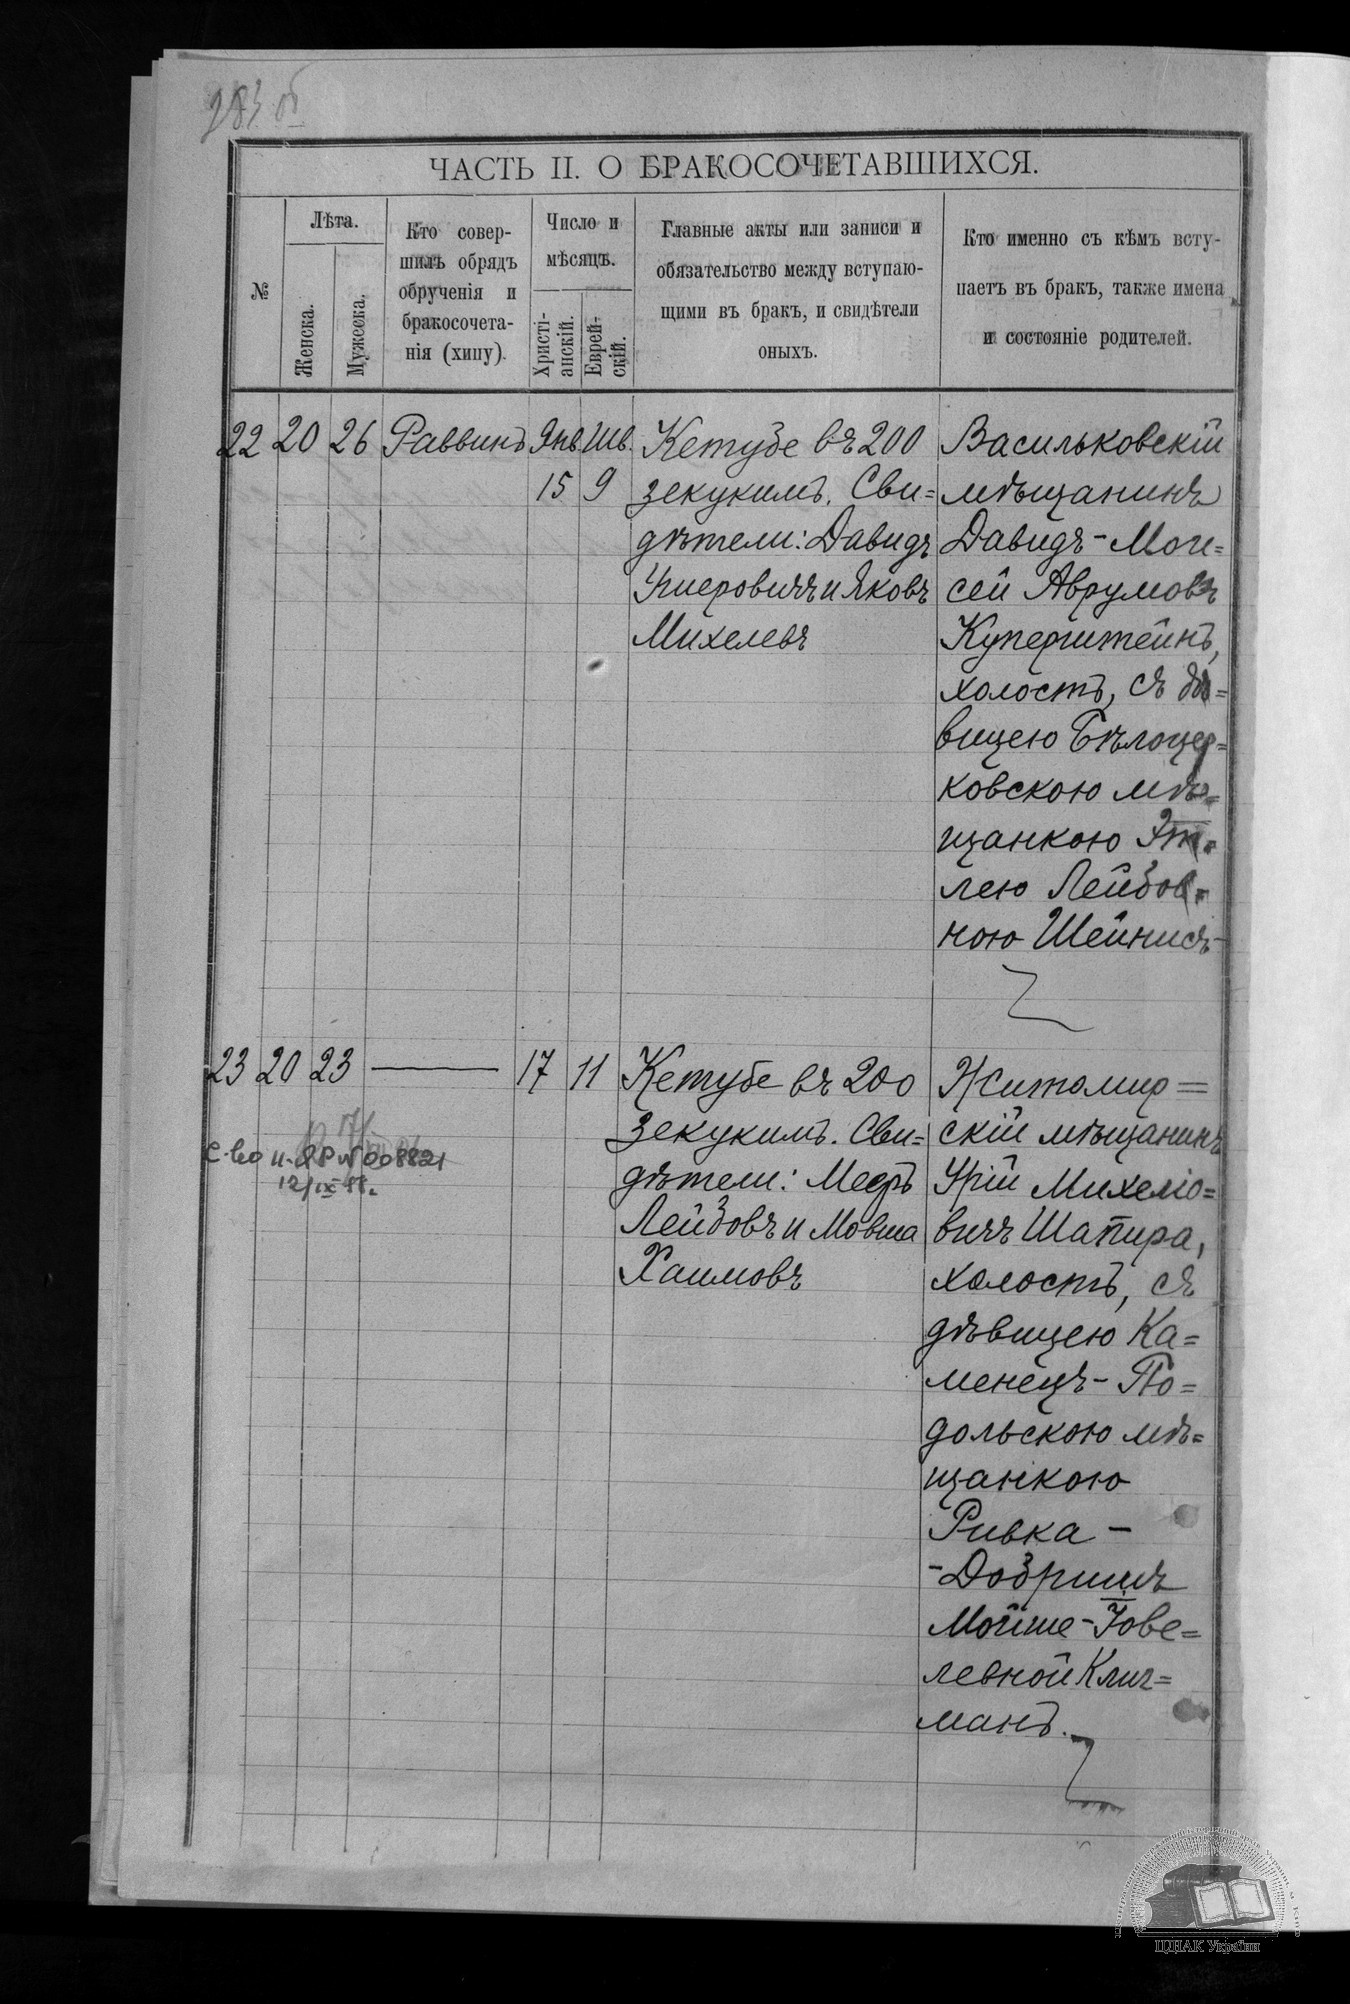 283 об
ЧАСТЬ II. О БРАКОСОЧЕТАВШИХСЯ.
№
Лѣта.
Женска.
Мужеска.
Кто совер-
шилъ обрядъ
обрученія и
бракосочета-
нія (хипу).
Число и
мѣсяцъ.
Христі-
анскій.
Еврей-
скій.
Главные акты или записи и
обязательство между вступаю-
щими въ бракъ, и свидѣтели
оныхъ.
Кто именно съ кѣмъ всту-
паетъ въ бракъ, также имена
и состояніе родителей.
22 20 26 Раввинъ Янв. Шв.
15 9
Кетубе въ 200
зекукимъ. Сви=
дѣтели: Давидъ
Ушеровичъ и Яковъ
Михелевъ
Васильковскій
мѣщанинъ
Давидъ-Мои=
сей Аврумовъ
Куперштейнъ,
холостъ, съ дѣ=
вицею Бѣлоцер=
ковскою мѣ=
щанкою Эт=
лею Лейбов=
ною Шейнисъ
23 20 23 — 17 11
С-во II-ЯР № 008821
12/IX 88.
Кетубе въ 200
зекукимъ. Сви=
дѣтели: Мееръ
Лейбовъ и Мовша
Хаимовъ
Житомир=
скій мѣщанинъ
Урій Михеліо=
вичъ Шапира,
холостъ, съ
дѣвицею Ка=
менецъ-По=
дольскою мѣ=
щанкою
Ривка -
-Добришъ
Мойше-Іове=
левной Клиг=
манъ.
ЦДІАК України